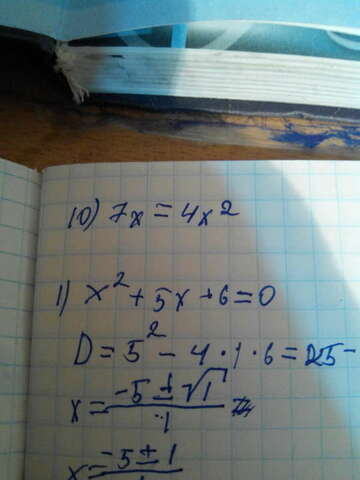 10) 7x = 4x²
1) x² + 5x + 6 = 0
D = 5² - 4 · 1 · 6 = 25 -
x = (-5 ± √1) / 1 =
x = -5 ± 1